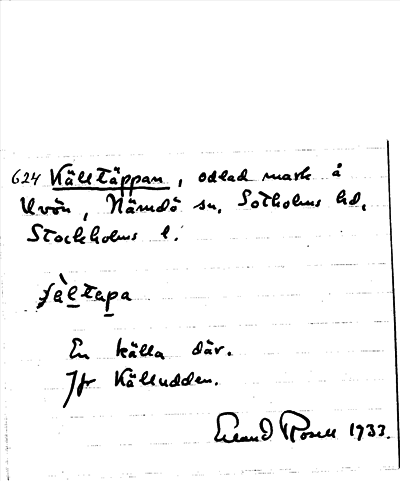 624 Källtäppan, odlad mark å
Uvön, Nämdö sn, Sotholms hd,
Stockholms l.
En källa där.
Jfr Källudden.
Erland Rosell 1933.